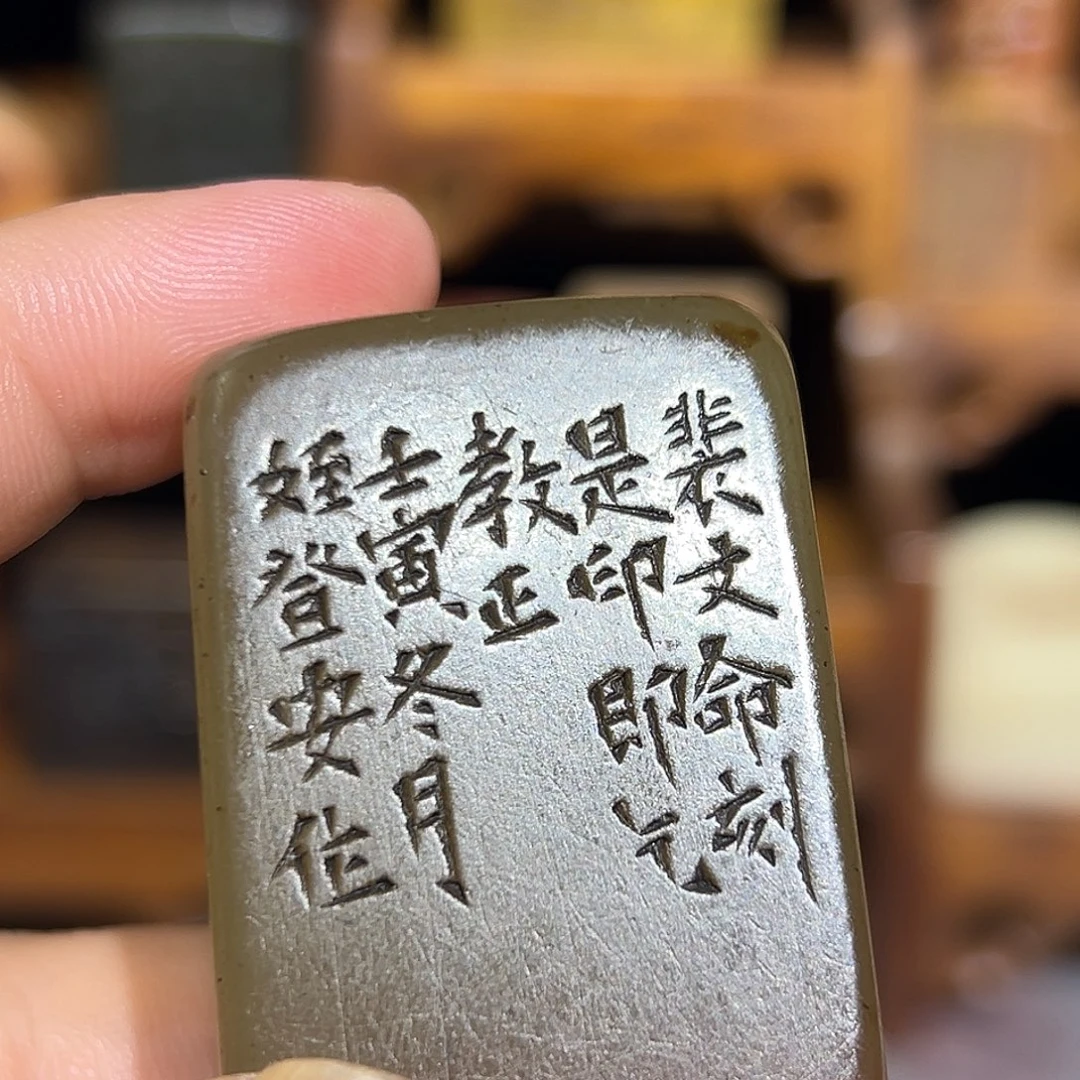 裴文命刻
是印即乞
教正
壬寅冬月
姪登安作